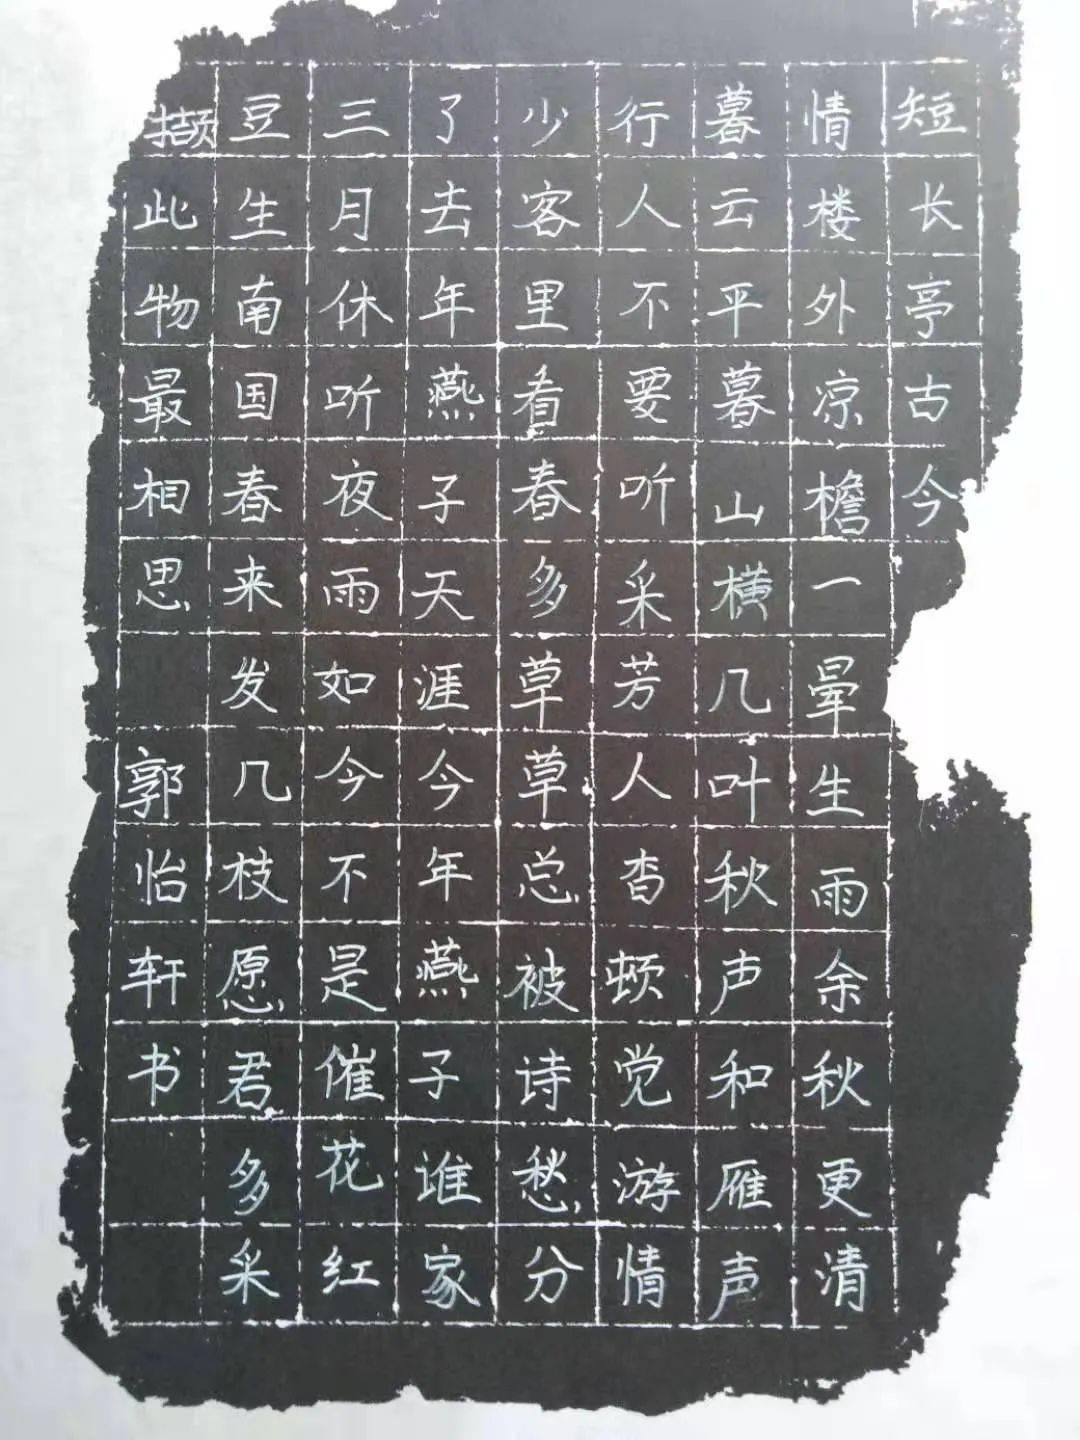 短长亭古今
情楼外凉檐一晕生雨余秋更清
暮云平暮山横几叶秋声和雁声
行人不要听采芳人杳顿觉游情
少客里看春多草草总被诗愁分
了去年燕子天涯今年燕子谁家
三月休听夜雨如今不是催花红
豆生南国春来发几枝愿君多采
撷此物最相思 郭怡轩书